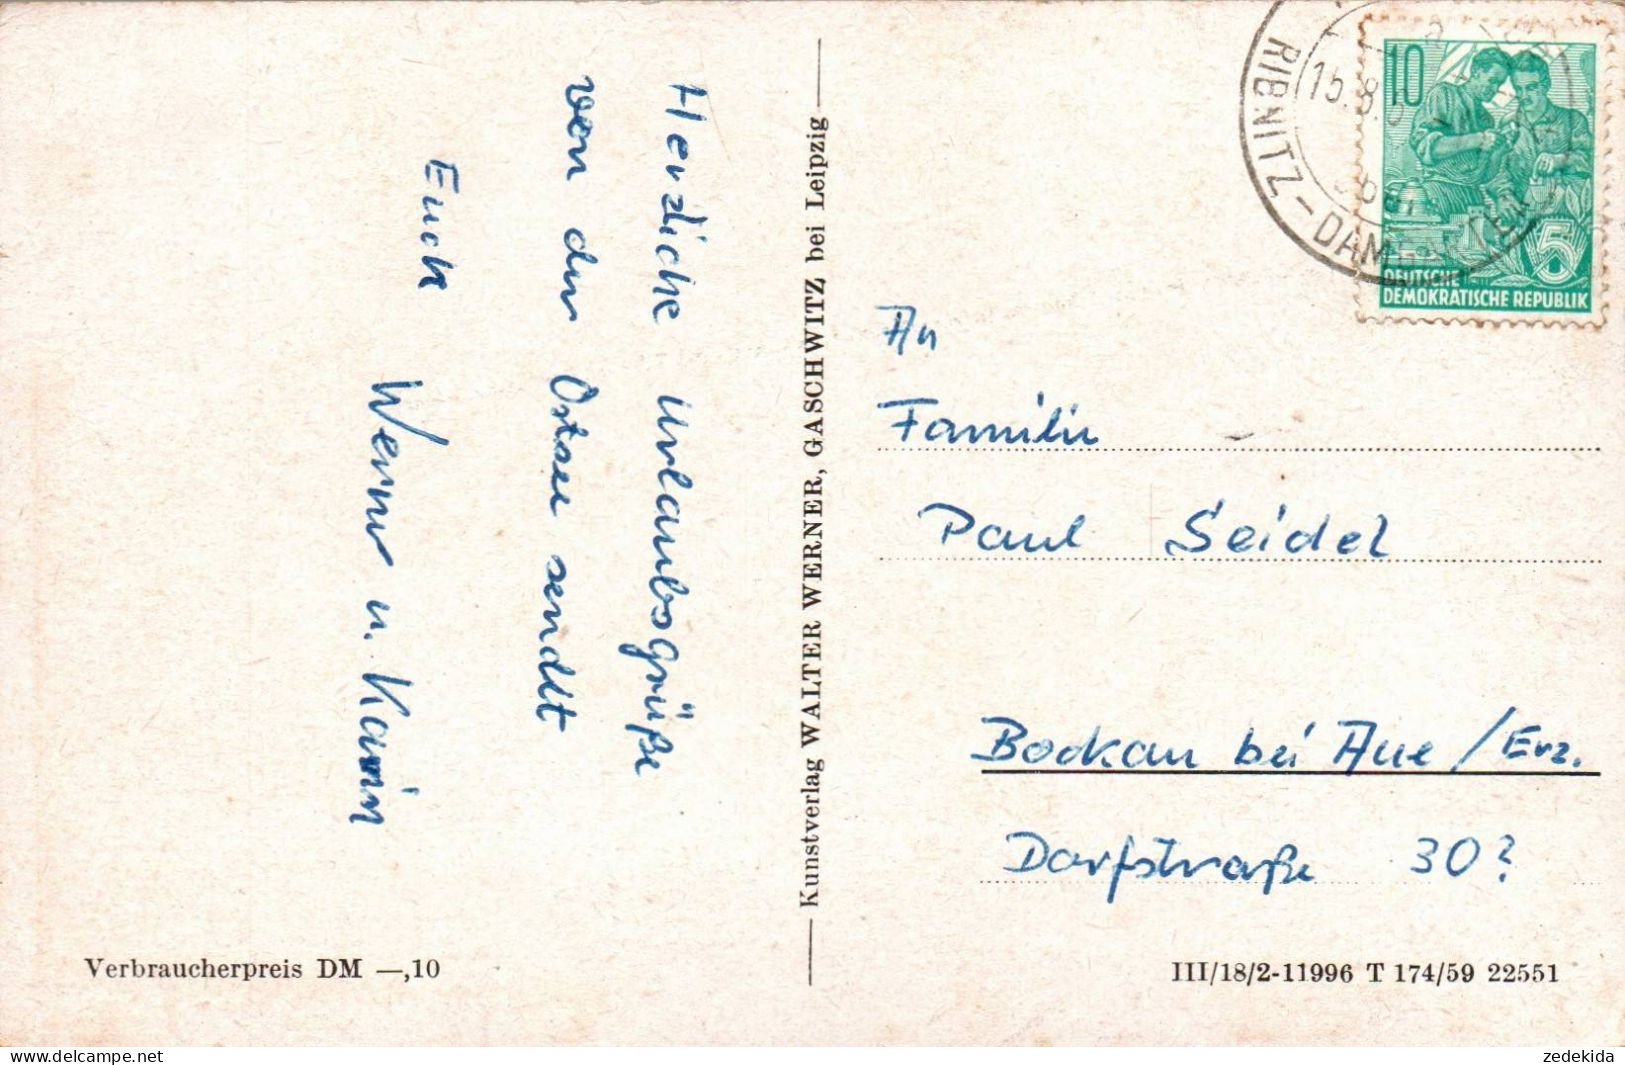 Herzliche Urlaubsgrüße
von der Ostsee sendet
Euch
Werner u. Karin
Verbraucherpreis DM —,10
Kunstverlag WALTER WERNER, GASCHWITZ bei Leipzig
RIBNITZ-DAMGARTEN
15.8.
10
5
DEUTSCHE
DEMOKRATISCHE REPUBLIK
An
Familie
Paul Seidel
Bockau bei Aue / Erz.
Dorfstraße 30?
III/18/2-11996 T 174/59 22551
www.delcampe.net
zedekida